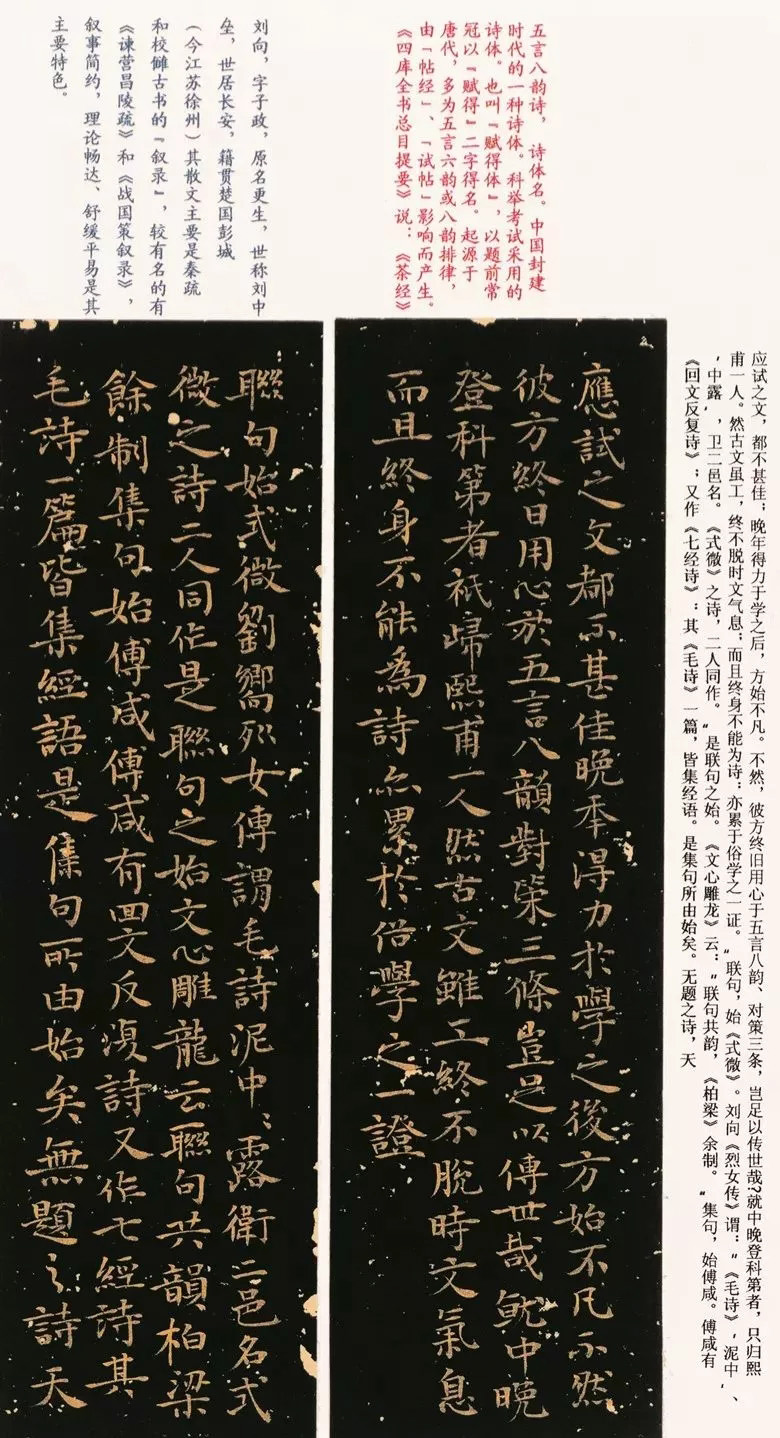 五言八韵诗，诗体名。中国封建
时代的一种诗体。科举考试采用的
诗体。也叫『赋得体』，以题前常
冠以『赋得』二字得名。起源于
唐代，多为五言六韵或八韵排律，
由「帖经」、「试帖」影响而产生。
《四库全书总目提要》说：《茶经》
刘向，字子政，原名更生，世称刘中
垒，世居长安，籍贯楚国彭城
（今江苏徐州）其散文主要是秦疏
和校雠古书的『叙录』，较有名的有
《谏营昌陵疏》和《战国策叙录》，
叙事简约，理论畅达、舒缓平易是其
主要特色。
应试之文，都不甚佳；晚年得力于学之后，方始不凡。不然，彼方终旧用心于五言八韵、对策三条，岂足以传世哉？就中晚登科第者，只归熙
甫一人。然古文虽工，终不脱时文气息；而且终身不能为诗：亦累于俗学之一证。“联句，始《式微》。刘向《烈女传》谓：“《毛诗》‘泥中’、
‘中露’，卫二邑名。《式微》之诗，二人同作。“是联句之始。《文心雕龙》云：“联句共韵，《柏梁》余制。“集句，始傅咸。傅咸有
《回文反复诗》；又作《七经诗》：其《毛诗》一篇，皆集经语。是集句所由始矣。无题之诗，天
應試之文都不甚佳晚年得力於學之後方始不凡不然
彼方終日用心於五言八韻對策三條豈足以傳世哉就中晚
登科第者祇歸熙甫一人然古文雖工終不脫時文氣息
而且終身不能為詩亦累於俗學之一證
聯句始式微劉嚮列女傳謂毛詩泥中:露衛二邑名式
微之詩二人同作是聯句之始文心雕龍云聯句共韻柏梁
餘制集句始傅咸傅咸有回文反復詩又作七經詩其
毛詩一篇皆集經語是集句所由始矣無題之詩天